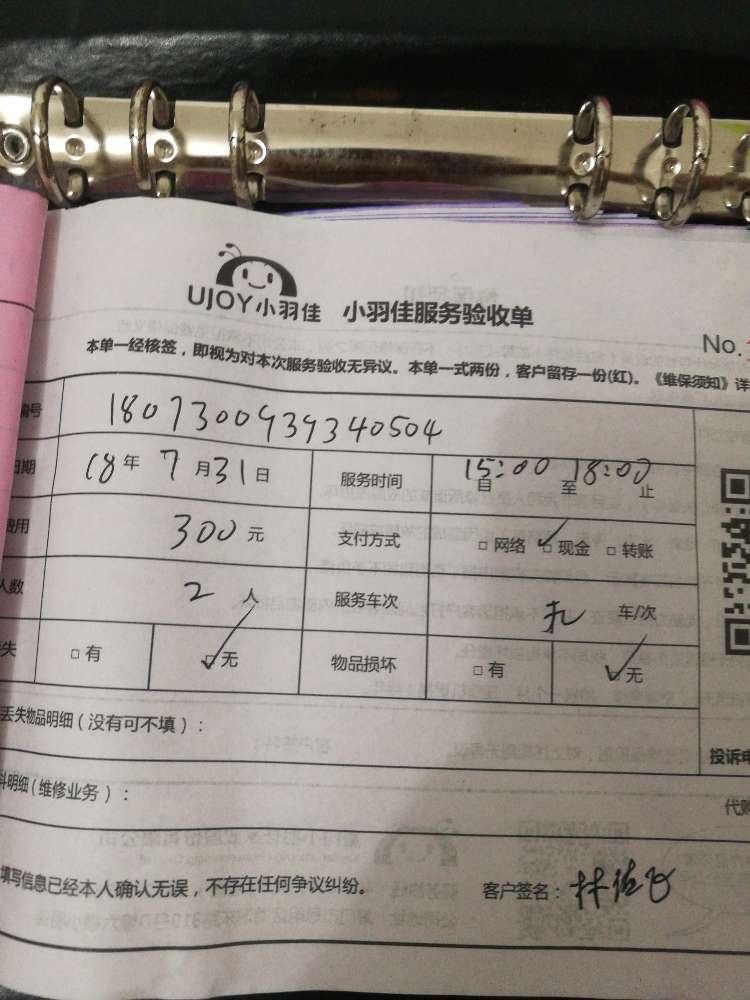 UJOY小羽佳 小羽佳服务验收单
No.
本单一经核签，即视为对本次服务验收无异议。本单一式两份，客户留存一份(红)。《维保须知》详
编号 180730093934050​4
日期 18年7月31日 服务时间 15:00 18:00 自 至 止
费用 300元 支付方式 □网络 □现金 □转账
人数 2人 服务车次 车/次
失 □有 □无 物品损坏 □有 □无
丢失物品明细(没有可不填)：
投诉电
料明细(维修业务)：
代购
填写信息已经本人确认无误，不存在任何争议纠纷。 客户签名：林佳飞